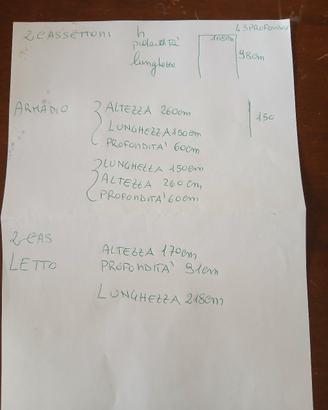 2 CASSETTONI h 43 PROFONDITÀ
profondità 108cm
lunghezza 98cm
ARMADIO ALTEZZA 260cm 150
LUNGHEZZA 150cm
PROFONDITA' 60cm
LUNGHEZZA 150cm
ALTEZZA 260 cm
PROFONDITA' 60cm
2-CAS ALTEZZA 170cm
LETTO PROFONDITA' 91cm
LUNGHEZZA 218cm